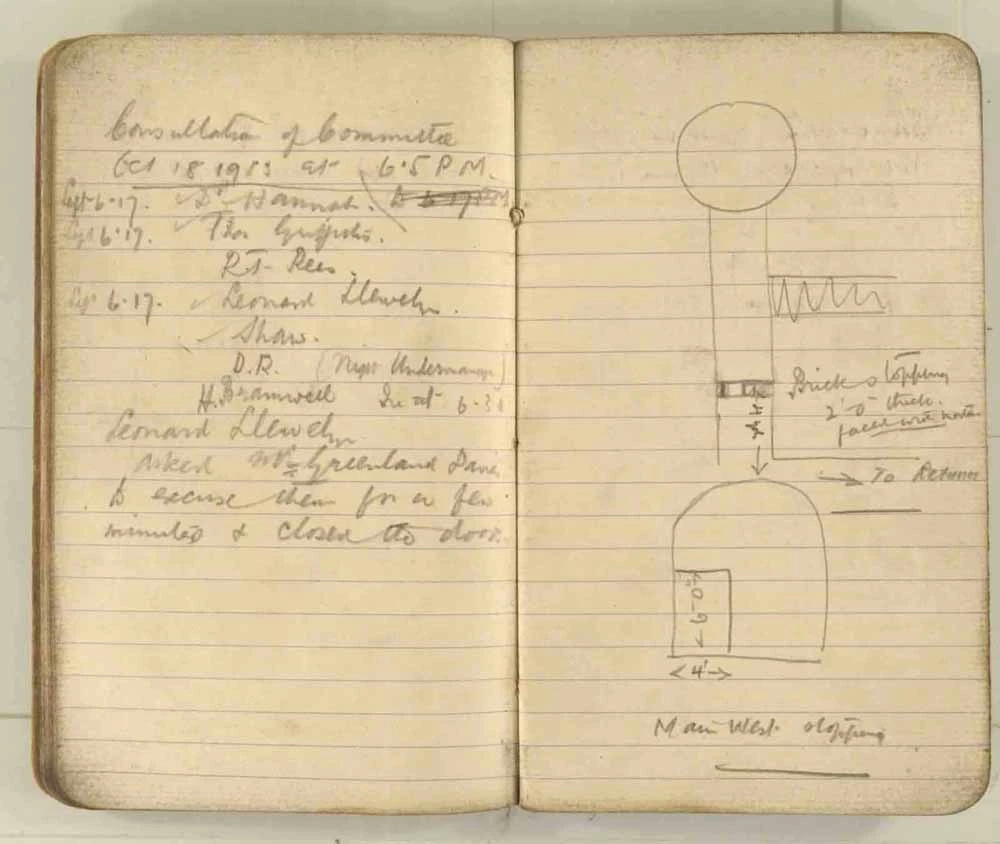 Consultation of Committee
Oct 18 1913 at 6.5 P.M.
Left 6.17. Dr Hannah.
Left 6.17. Thos Griffiths.
R.T. Rees
Left 6.17. Leonard Llewelyn.
Shaw.
D.R. (Night Undermanager)
H. Bramwell In at 6-30
Leonard Llewelyn
asked Mr Greenland Davies
to excuse them for a few
minutes & closed the door.
Brick stopping
2'-0" thick.
faced with
To Return
6'-0"
4'
Main West stopping